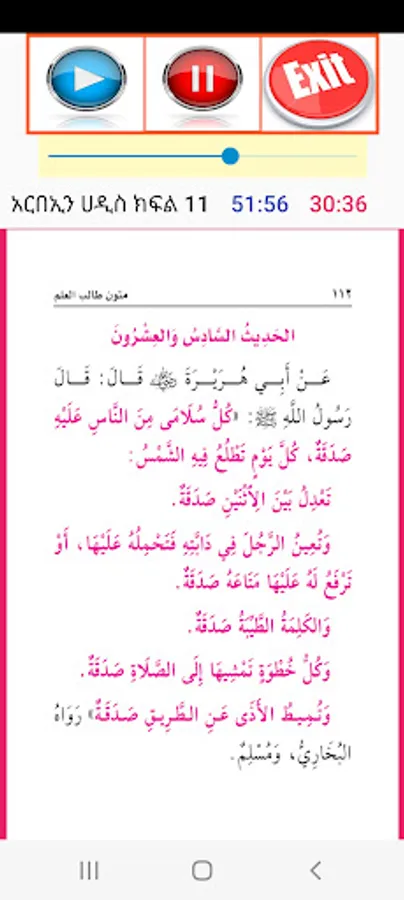 Exit
አርበኢን ሀዲስ ክፍል 11 51:56 30:36
١١٢ متون طالب العلم
الحَدِيثُ السَّادِسُ وَالعِشْرُونَ
عَنْ أَبِي هُرَيْرَةَ رضي الله عنه قَالَ: قَالَ
رَسُولُ اللَّهِ ﷺ: «كُلُّ سُلَامَى مِنَ النَّاسِ عَلَيْهِ
صَدَقَةٌ، كُلَّ يَوْمٍ تَطْلُعُ فِيهِ الشَّمْسُ:
تَعْدِلُ بَيْنَ الِاثْنَيْنِ صَدَقَةٌ.
وَتُعِينُ الرَّجُلَ فِي دَابَّتِهِ فَتَحْمِلُهُ عَلَيْهَا، أَوْ
تَرْفَعُ لَهُ عَلَيْهَا مَتَاعَهُ صَدَقَةٌ.
وَالكَلِمَةُ الطَّيِّبَةُ صَدَقَةٌ.
وَكُلُّ خُطْوَةٍ تَمْشِيهَا إِلَى الصَّلَاةِ صَدَقَةٌ.
وَتُمِيطُ الأَذَى عَنِ الطَّرِيقِ صَدَقَةٌ» رَوَاهُ
البُخَارِيُّ، وَمُسْلِمٌ.